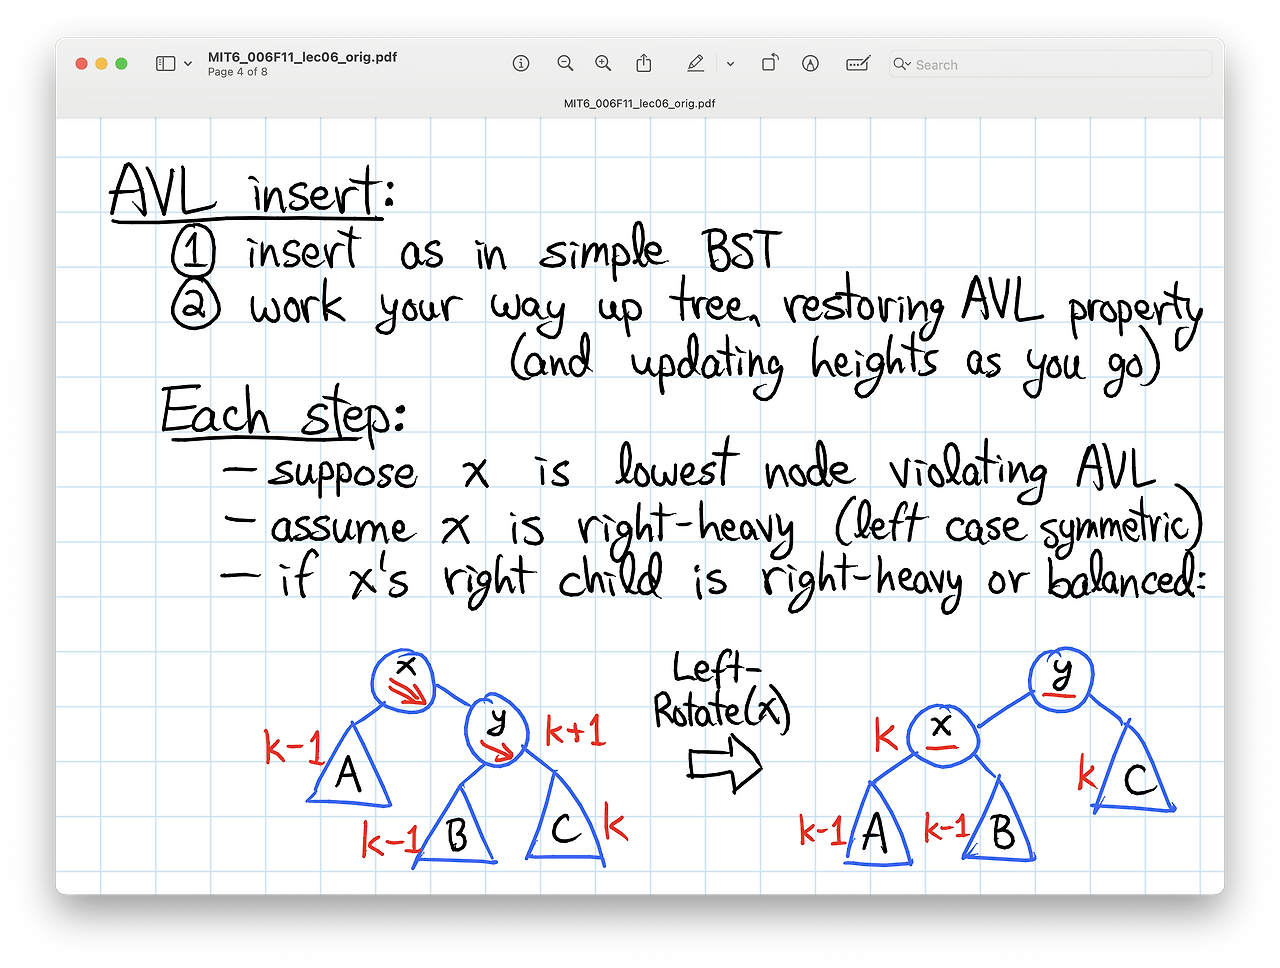 MIT6_006F11_lec06_orig.pdf
Page 4 of 8
Search
MIT6_006F11_lec06_orig.pdf
AVL insert:
① insert as in simple BST
② work your way up tree, restoring AVL property
(and updating heights as you go)
Each step:
- suppose x is lowest node violating AVL
- assume x is right-heavy (left case symmetric)
- if x's right child is right-heavy or balanced:
x
y
k+1
k-1
A
k-1
B
C
k
Left-
Rotate(x)
y
k
x
k
C
k-1
A
k-1
B